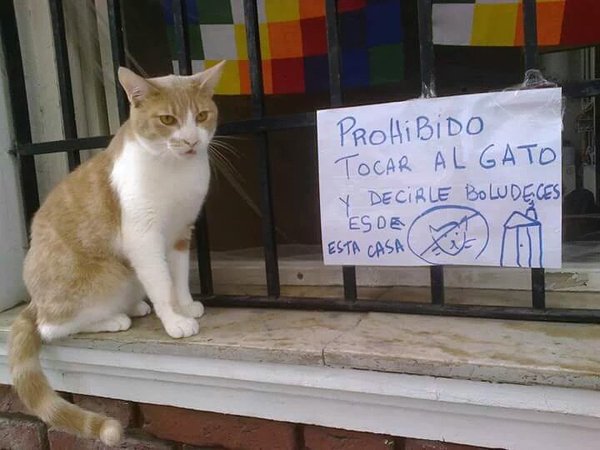 PROHiBiDO
TOCAR AL GATO
Y DECiRLE BOLUDECES
ES DE
ESTA CASA